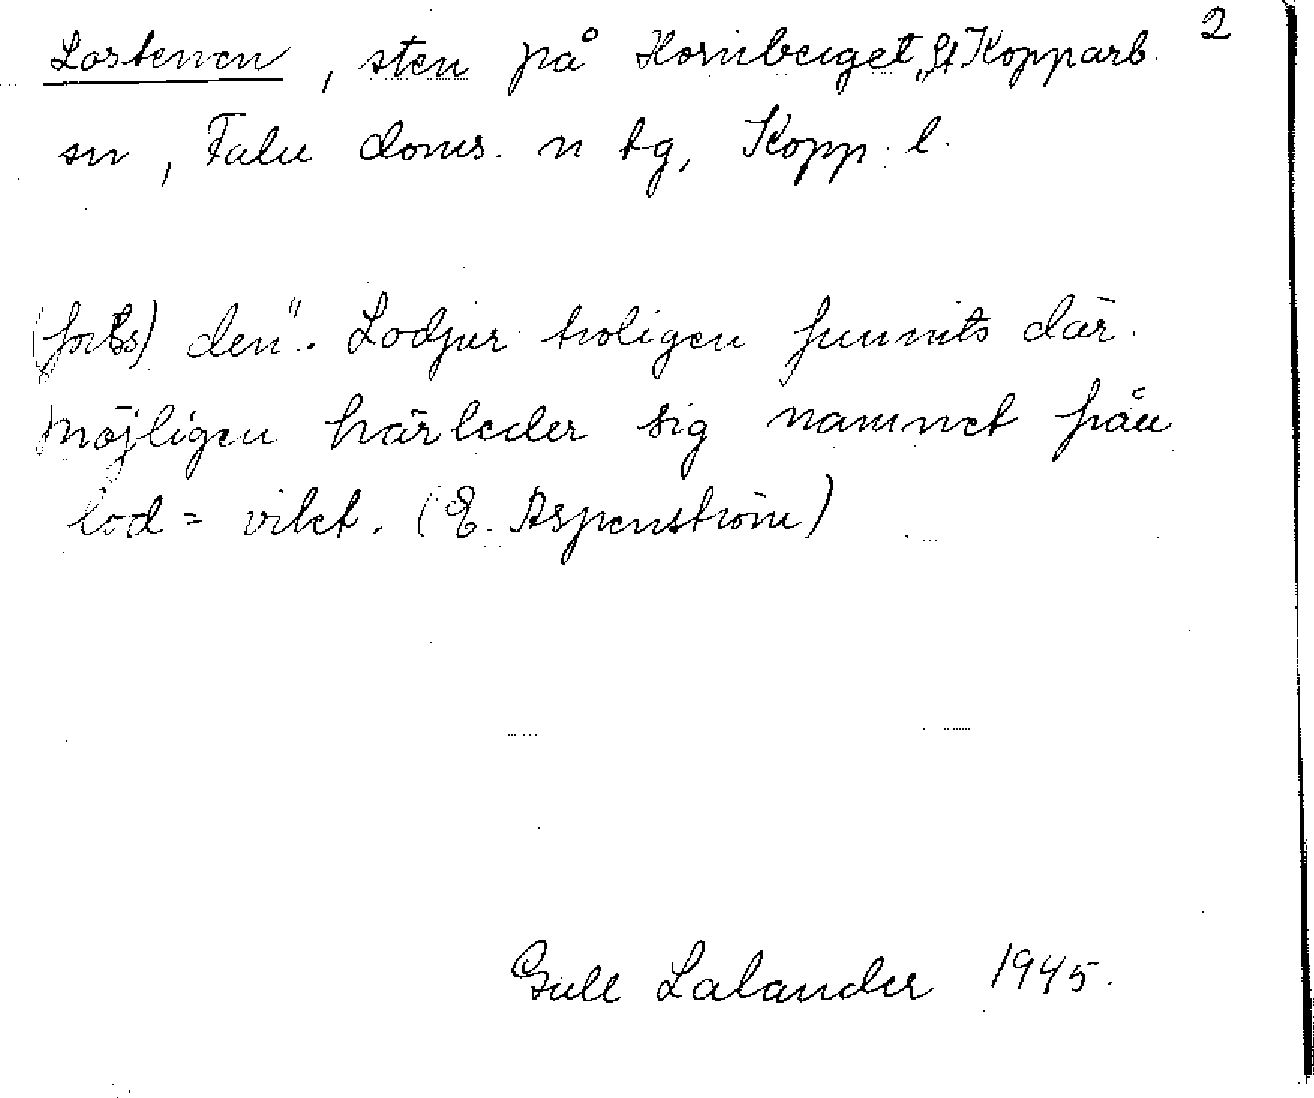 2
Lostenen, sten på Hornberget, St Kopparb.
sn, Falu doms. n tg, Kopp. l.
(forts) den". Lodjur troligen funnits där.
Möjligen härleder sig namnet från
lod = vikt. (E. Aspenström)
Gull Lalander 1945.